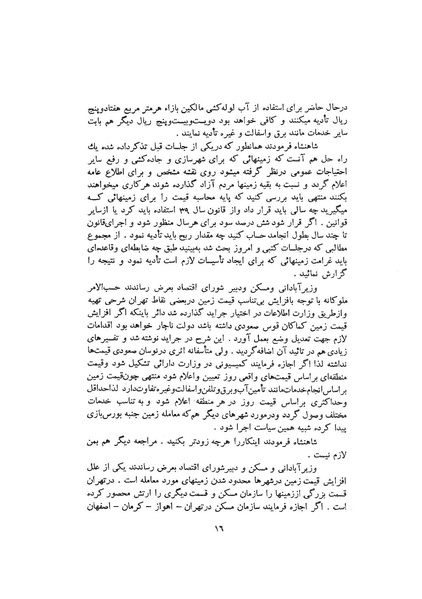 درحال حاضر برای استفاده از آب لوله‌کشی مالکین بازاء هرمتر مربع هفتادوپنج
ریال تأدیه میکنند و کافی خواهد بود دویست‌وبیست‌وپنج ریال دیگر هم بابت
سایر خدمات مانند برق واسفالت و غیره تأدیه نمایند .
شاهنشاه فرمودند همانطور که دریکی از جلسات قبل تذکرداده شده یك
راه حل هم آنست که زمینهائی که برای شهرسازی و جاده‌کشی و رفع سایر
احتیاجات عمومی درنظر گرفته میشود روی نقشه مشخص و برای اطلاع عامه
اعلام گردد و نسبت به بقیه زمینها مردم آزاد گذارده شوند هرکاری میخواهند
بکنند منتهی باید بررسی کنید که پایه محاسبه قیمت را برای زمینهائی کـه
میگیرید چه سالی باید قرار داد واز قانون سال ۳۹ استفاده باید کرد یا ازسایر
قوانین . اگر قرار شود شش درصد سود برای هرسال منظور شود و اجرای‌قانون
تا چند سال بطول انجامد حساب کنید چه مقدار ربح باید تأدیه نمود . از مجموع
مطالبی که درجلسات کتبی و امروز بحث شد به‌بینید طبق چه ضابطه‌ای وقاعده‌ای
باید غرامت زمینهائی که برای ایجاد تأسیسات لازم است تأدیه نمود و نتیجه را
گزارش نمائید .
وزیرآبادانی ومسکن ودبیر شورای اقتصاد بعرض رساندند حسب‌الامر
ملوکانه با توجه بافزایش بی‌تناسب قیمت زمین دربعضی نقاط تهران شرحی تهیه
وازطریق وزارت اطلاعات در اختیار جراید گذارده شد دائر باینکه اگر افزایش
قیمت زمین کماکان قوس صعودی داشته باشد دولت ناچار خواهد بود اقدامات
لازم جهت تعدیل وضع بعمل آورد . این شرح در جراید نوشته شد و تفسیرهای
زیادی هم در تائید آن اضافه‌گردید . ولی متأسفانه اثری درنوسان صعودی قیمت‌ها
نداشته لذا اگر اجازه فرمایند کمیسیونی در وزارت دارائی تشکیل شود وقیمت
منطقه‌ای براساس قیمت‌های واقعی روز تعیین واعلام شود منتهی چون‌قیمت زمین
براساس‌انجام‌خدمات‌مانند تأمین‌آب‌وبرق‌وتلفن‌واسفالت‌وغیره‌تفاوت‌دارد لذاحداقل
وحداکثری براساس قیمت روز در هر منطقه اعلام شود و به تناسب خدمات
مختلف وصول گردد ودرمورد شهرهای دیگر هم‌که معامله زمین جنبه بورس‌بازی
پیدا کرده شبیه همین سیاست اجرا شود .
شاهنشاه فرمودند اینکاررا هرچه زودتر بکنید . مراجعه دیگر هم بمن
لازم نیست .
وزیرآبادانی و مسکن و دبیرشورای اقتصاد بعرض رساندند یکی از علل
افزایش قیمت زمین درشهرها محدود شدن زمینهای مورد معامله است . درتهران
قسمت بزرگی اززمینها را سازمان مسکن و قسمت دیگری را ارتش محصور کرده
است . اگر اجازه فرمایند سازمان مسکن درتهران - اهواز - کرمان - اصفهان
۱٦